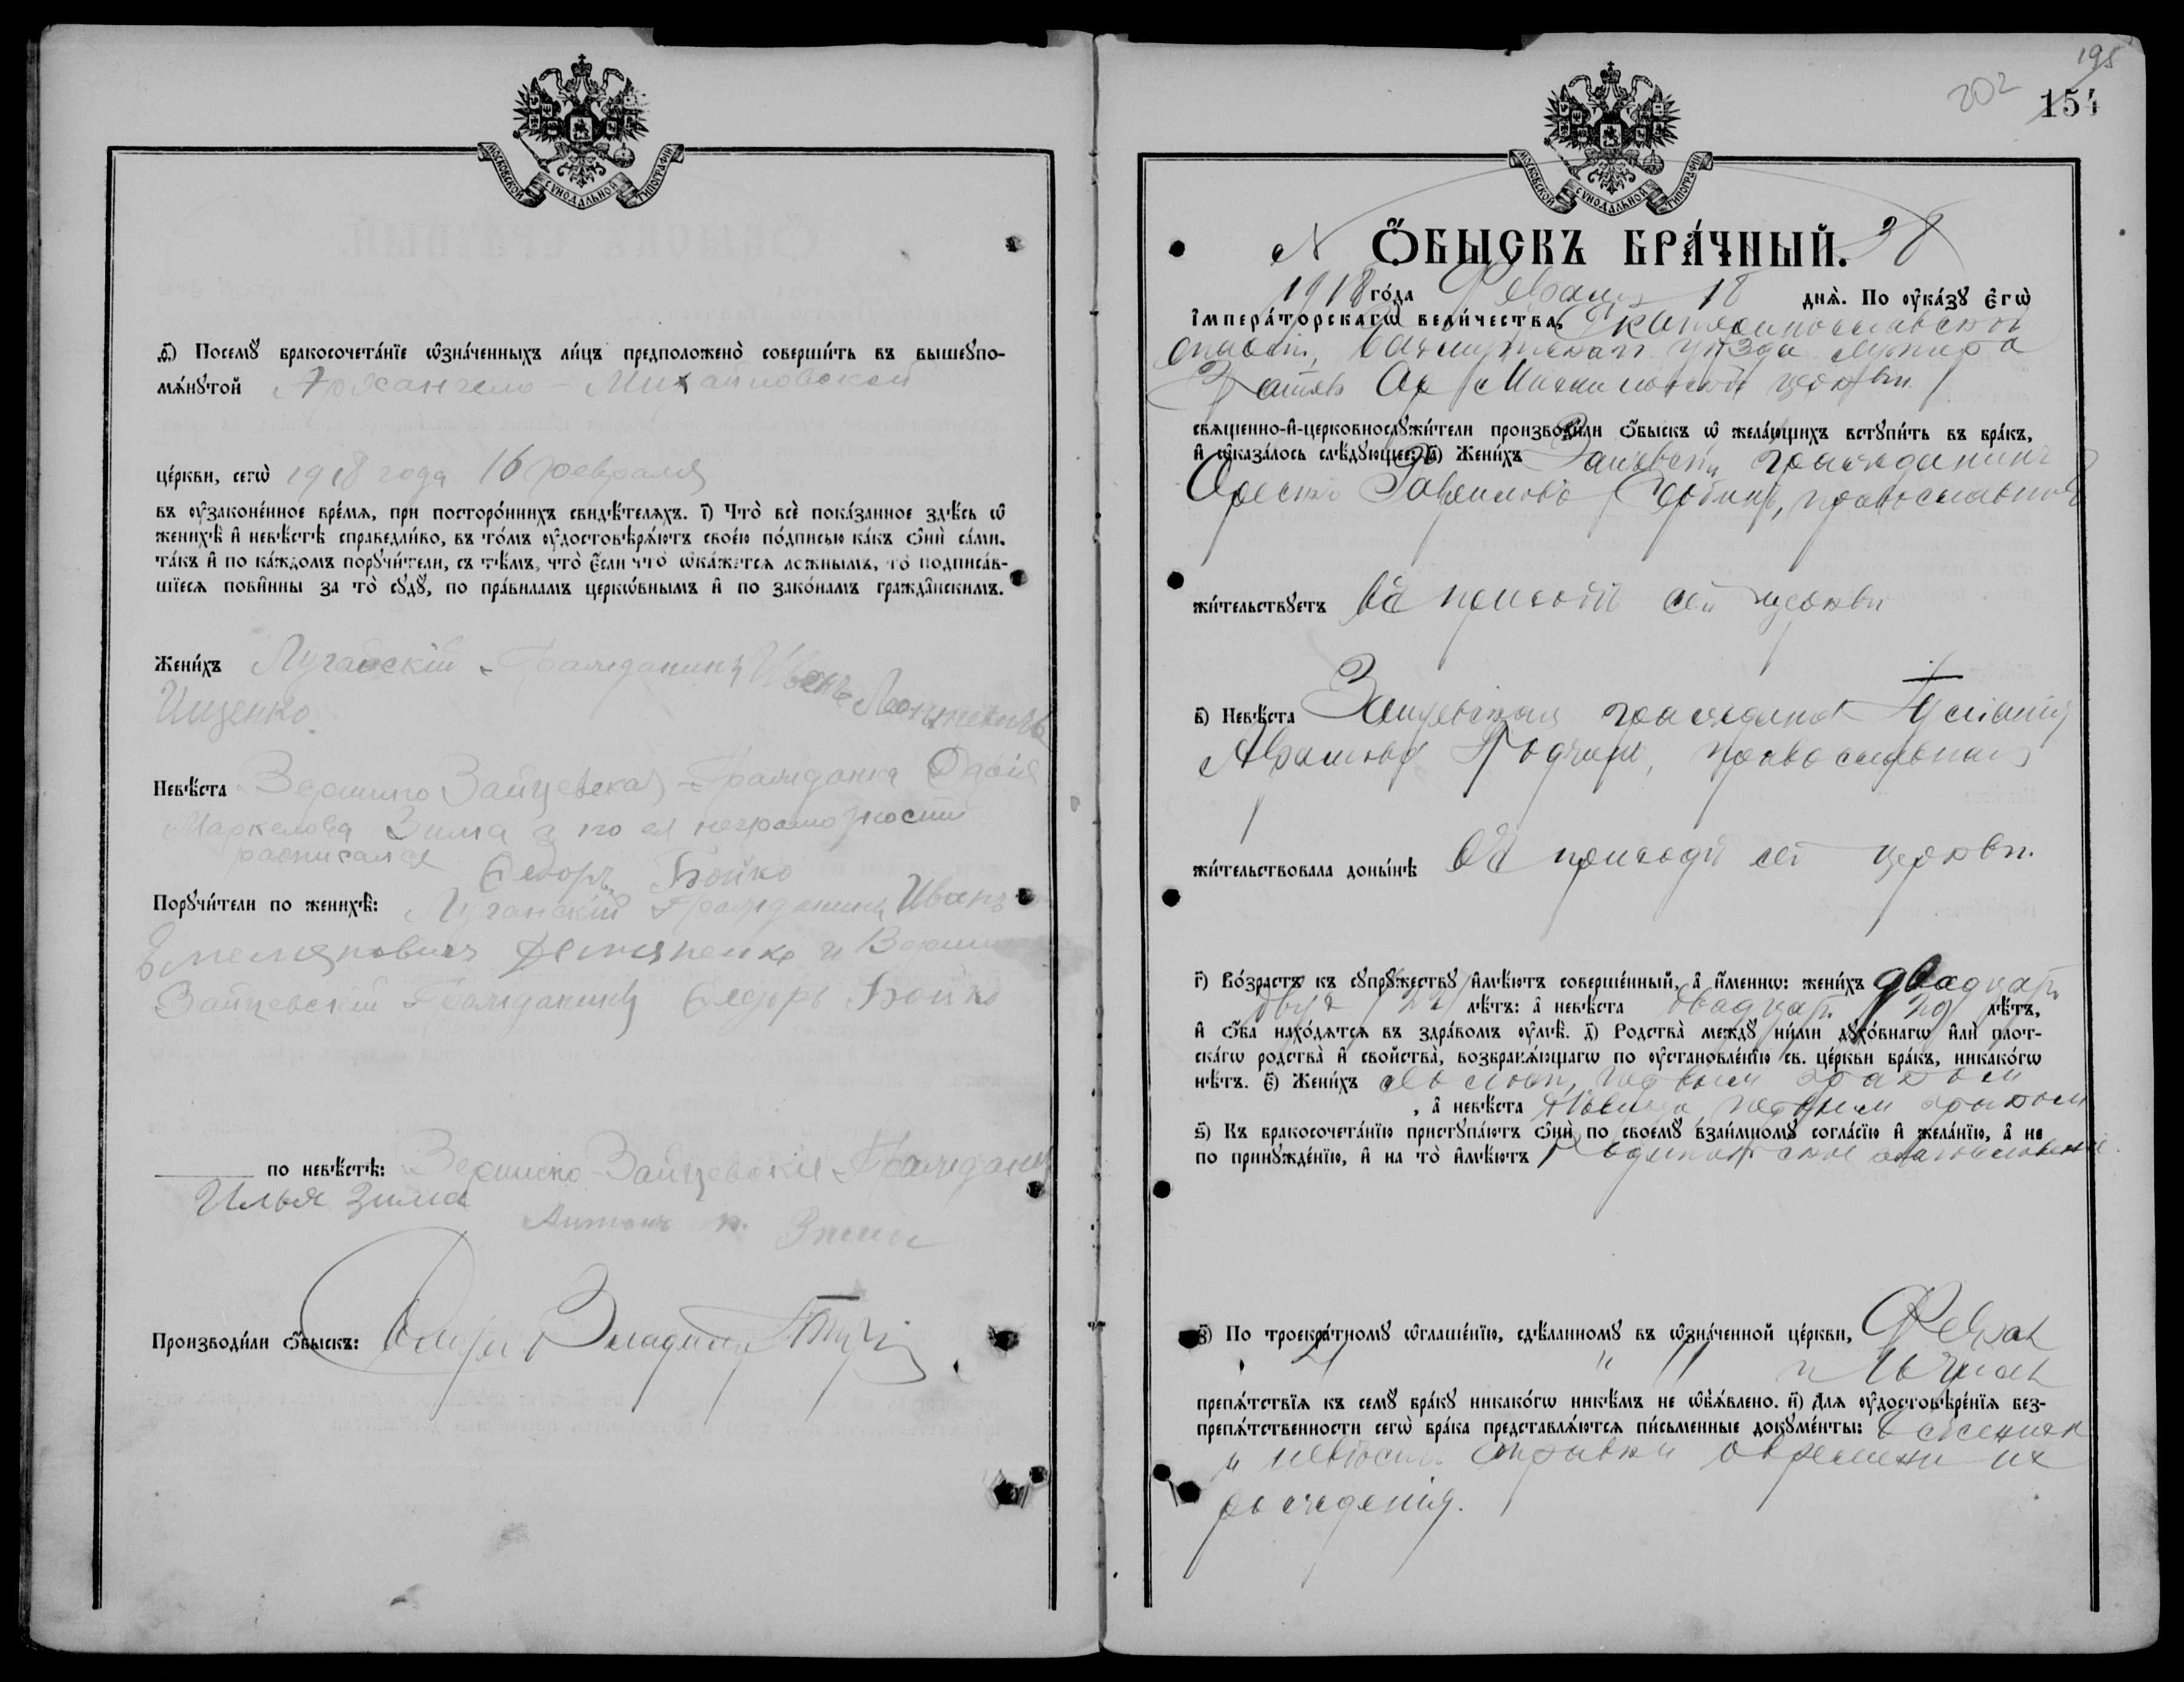 МОСКОВСКОЙ СѴНОДАЛЬНОЙ ТИПОГРАФІИ
ѳ҃) Посемꙋ бракосочета́нїе ѡ҆зна́ченныхъ ли́цъ предположено̀ соверши́ть въ вышеупо-
мѧ́нꙋтой Архангело-Михайловской
це́ркви, сегѡ̀ 1918 года 16 февраля
въ ᲂу҆законе́нное вре́мѧ, при посторо́ннихъ свидѣ́телѧхъ. і҃) Что̀ всѐ пока́занное здѣ́сь ѡ҆
женихѣ̀ и҆ невѣ́стѣ справедли́во, въ то́мъ ᲂу҆достовѣрѧ́ютъ свое́ю по́дписью ка́къ ѻ҆нѝ са́ми.
та́къ и҆ по ка́ждомъ порꙋчи́тели, съ тѣ́мъ, что̀ є҆́сли что̀ ѡ҆ка́жетсѧ ло́жнымъ, то̀ подписа́в-
шїесѧ пови́нны за то̀ сꙋдꙋ̀, по пра́виламъ церкѡ́внымъ и҆ по зако́намъ гражда́нскимъ.
Жени́хъ Луганскій - Гражданинъ Иванъ Леонтіевичъ
Ищенко
Невѣ́ста Зайцевская - Гражданка Дарія
Маркелова Зима а по ея неграмотности
расписался Ѳедоръ Бойко
Порꙋчи́тели по женихѣ̀: Луганскій Гражданинъ Иванъ
Емельяновичъ Демяненко и
Зайцевскій Гражданинъ Ѳедоръ Бойко
по невѣ́стѣ: Зайцевскіе Граждане
Илья Зима
Антонъ Зима
Производи́ли ѻ҆́быскъ: Владимир
195
202
154
МОСКОВСКОЙ СѴНОДАЛЬНОЙ ТИПОГРАФІИ
N ѺБЫСКЪ БРА́ЧНЫЙ. 38
1918 го́да Февраля 18 днѧ̀. По ᲂу҆ка́зꙋ є҆гѡ̀
і҆мпера́торскагѡ вели́чества, Екатеринославской
епархіи, Бахмутскаго уѣзда хутора
Зайцева Ар. Михайловской церкви
свѧще́нно-и҆-церковнослꙋжи́тели производи́ли ѻ҆́быскъ ѡ҆ жела́ющихъ встꙋпи́ть въ бра́къ,
и҆ ѡ҆каза́лось слѣ́дꙋющее: а҃) Жени́хъ Зайцевскій гражданинъ
Орестъ Гавриловъ православный
жи́тельствꙋетъ въ приходѣ сей церкви
в҃) Невѣ́ста Зайцевская гражданка Іуліанія
Авраамова православная
жи́тельствовала доны́нѣ въ приходѣ сей церкви.
г҃) Во́зрастъ къ сꙋпрꙋ́жествꙋ и҆мѣ́ютъ соверше́нный, а҆ и҆́меннѡ: жени́хъ двадцати
двухъ 22 лѣ́тъ: а҆ невѣ́ста двадцати 20 лѣ́тъ,
и҆ ѻ҆́ба нахо́дѧтсѧ въ здра́вомъ ᲂу҆мѣ̀. д҃) Родства̀ междꙋ̀ ни́ми дꙋхо́внагѡ и҆лѝ плот-
ска́гѡ родства̀ и҆ свойства̀, возбранѧ́ющагѡ по ᲂу҆становле́нїю св. це́ркви бра́къ, никако́гѡ
нѣ́тъ. є҃) Жени́хъ холостъ, первымъ бракомъ
, а҆ невѣ́ста дѣвица, первымъ бракомъ
ѕ҃) Къ бракосочета́нїю пристꙋпа́ютъ ѻ҆нѝ по своемꙋ̀ взаи́мномꙋ согла́сїю и҆ жела́нїю, а҆ не
по принꙋжде́нїю, и҆ на то̀ и҆мѣ́ютъ Родительское благословеніе.
з҃) По троекра́тномꙋ ѡ҆глаше́нїю, сдѣ́ланномꙋ въ ѡ҆зна́ченной це́ркви, Февраля
4 " 11 и 18 числа
препѧ́тствїѧ къ семꙋ̀ бра́кꙋ никако́гѡ никѣ́мъ не ѡ҆б̾ѧ́влено. и҃) Длѧ ᲂу҆достовѣре́нїѧ без-
препѧ́тственности сегѡ̀ бра́ка представлѧ́ютсѧ пи́сьменные докꙋме́нты: о женихѣ
и невѣстѣ справки о времени ихъ
рожденія.